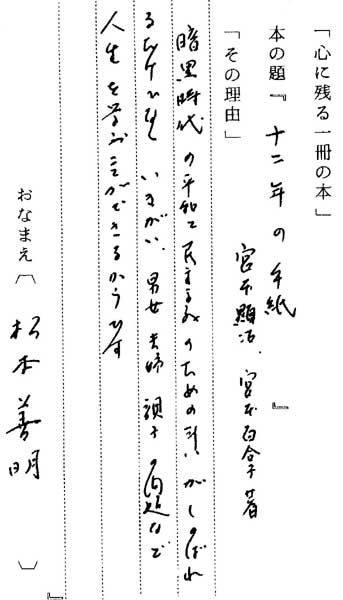 「心に残る一冊の本」
本の題『十二年の手紙』
宮本顕治、宮本百合子著
「その理由」
暗黒時代の平和と民主主義のための斗いがしのばれ
るだけでなく いきがい、男女 夫婦 親子の問題などで
人生を学ぶことができるからです
おなまえ〔松本善明〕
』